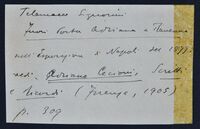 Telemaco Signorini
Fuori Porta Adriana a Ravenna
nell'Esposizione di Napoli del 1877.
vedi. Adriano Cecioni, Scritti
e Ricordi (Firenze, 1905)
p. 309